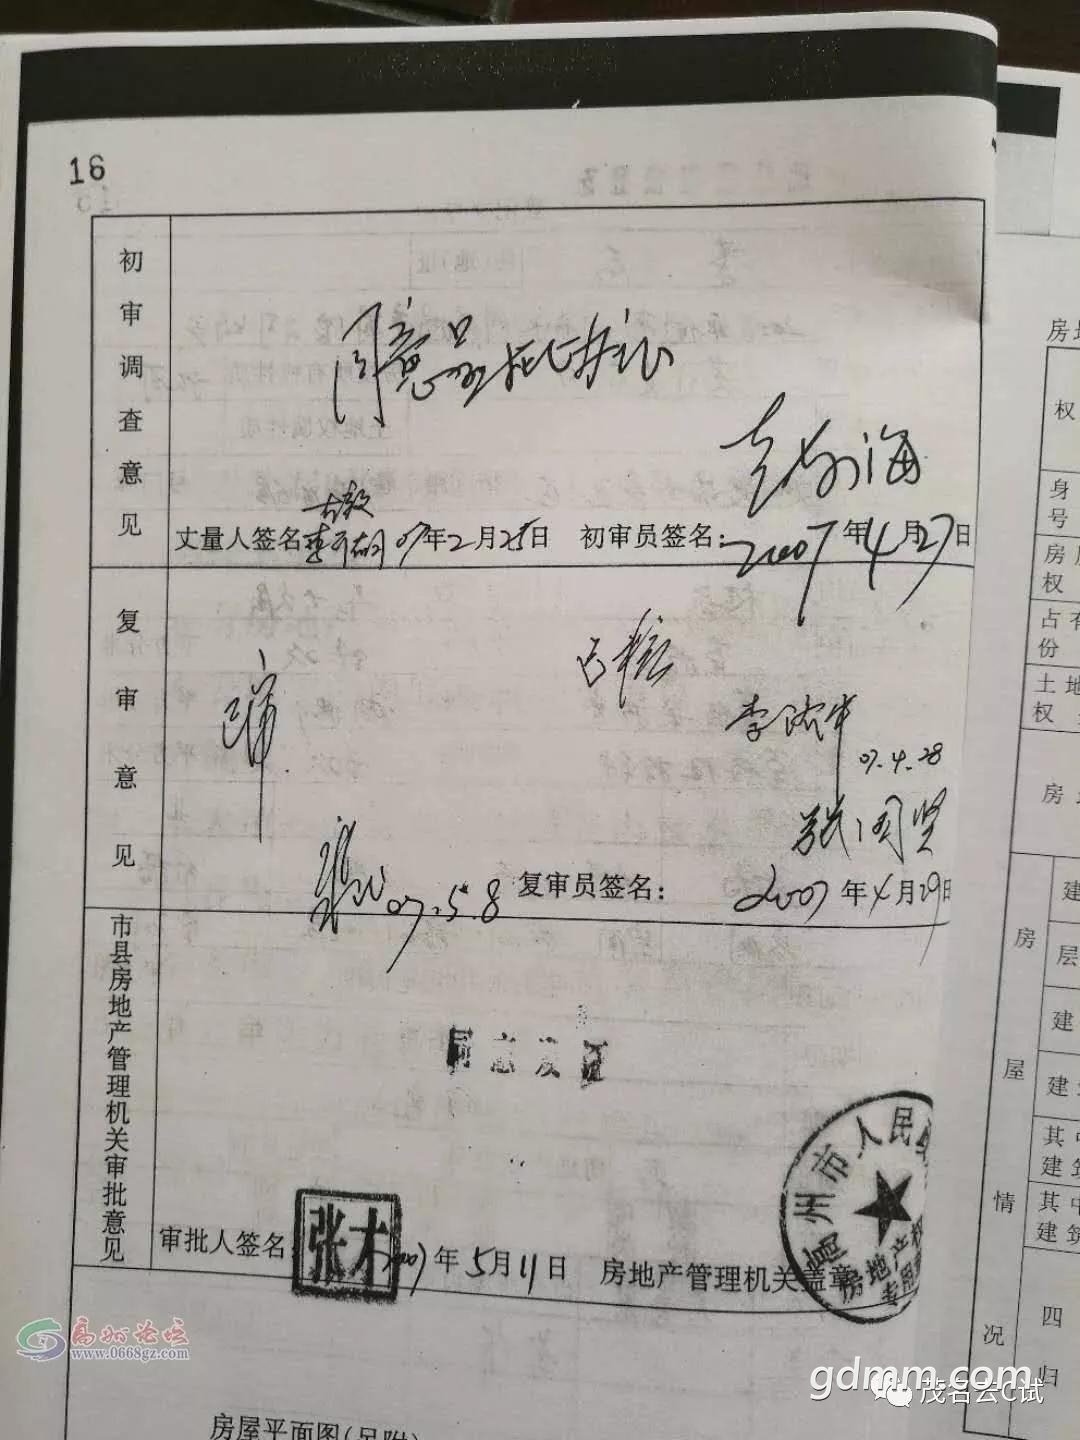 16
初审调查意见
同意呈批办证
丈量人签名 07年2月25日 初审员签名: 2007年4月27日
复审意见
已审
已核
07.4.28
张国贤
07.5.8 复审员签名: 2007年4月29日
市县房地产管理机关审批意见
同意发证
高州市人民
房地产权
专用
审批人签名: 张才 2007年5月11日 房地产管理机关盖章
房屋平面图(另附)
房地
权
身
号
房屋
权
占有
份
土地
权
房
房屋情况
建
层
建
建
其中
建筑
其中
建筑
四
归
高州论坛
www.0668gz.com
gdmm.com
茂名云C试